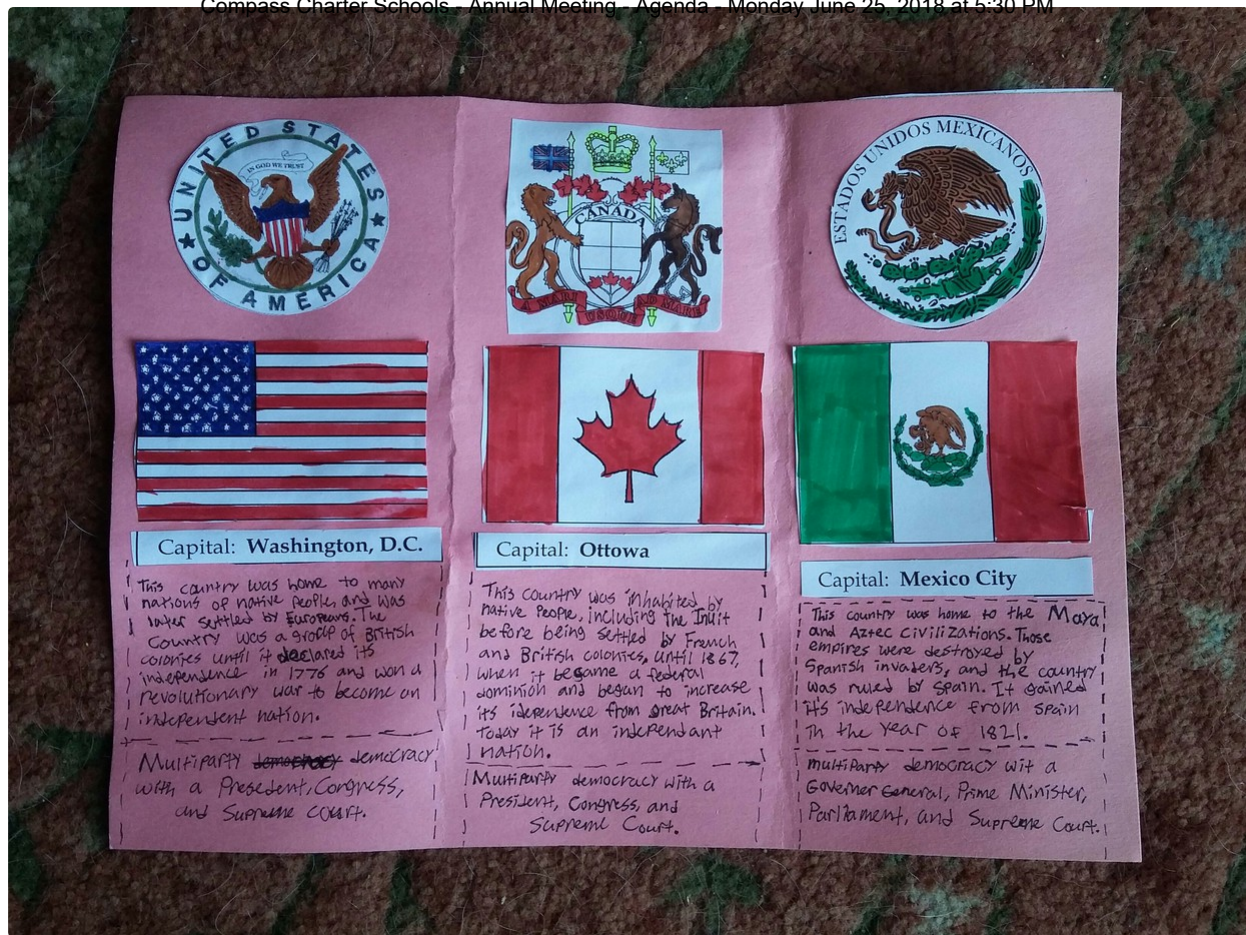 Compass Charter Schools - Annual Meeting - Agenda - Monday June 25, 2018 at 5:30 PM
UNITED STATES
OF AMERICA
IN GOD WE TRUST
Capital: Washington, D.C.
This country was home to many
nations of native people, and was
later settled by Europeans. The
Country was a group of British
colonies until it declared its
independence in 1776 and won a
revolutionary war to become an
independent nation.
Multiparty democracy democracy
with a Presedent, Congress,
and Supreme Court.
CANADA
A MARI
USQUE
AD MARE
Capital: Ottowa
This country was inhabited by
native People, including the Inuit
before being settled by French
and British colonies, until 1867,
when it became a federal
dominion and began to increase
its idependence from great Britain.
Today it is an independant
nation.
Multiparty democracy with a
President, Congress, and
Supreme Court.
ESTADOS UNIDOS MEXICANOS
Capital: Mexico City
This country was home to the Maya
and Aztec civilizations. Those
empires were destroyed by
Spanish invaders, and the country
was ruled by Spain. It gained
it's independence from Spain
in the year of 1821.
multiparty democracy wit a
Governer General, Prime Minister,
Parliament, and Supreme Court.